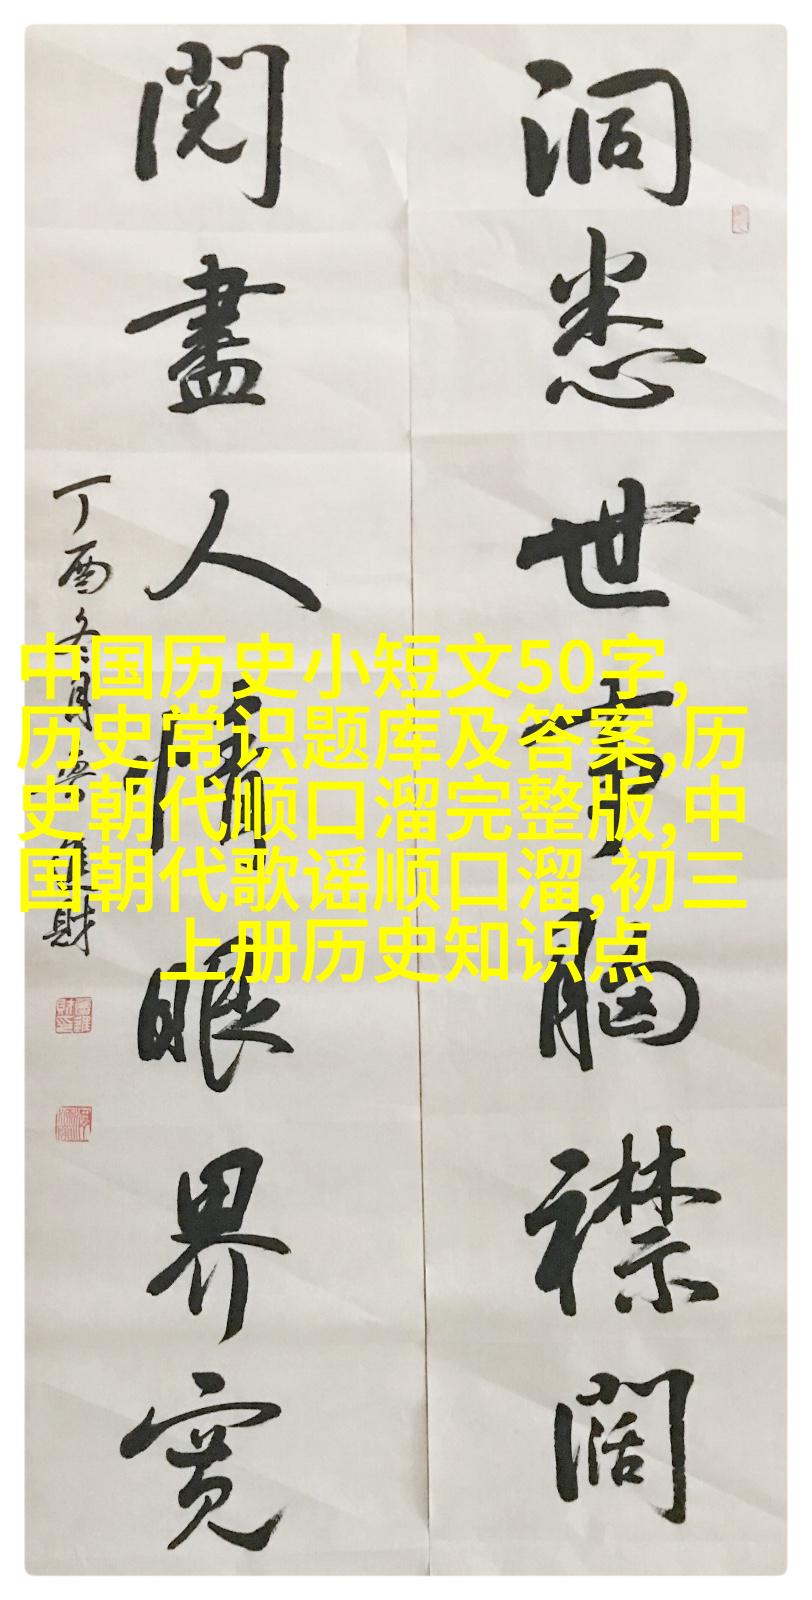 洞悉世事胸襟闊
閱盡人情眼界寬
丁酉冬月
財
中国历史小短文50字,
历史常识题库及答案,历
史朝代顺口溜完整版,中
国朝代歌谣顺口溜,初三
上册历史知识点